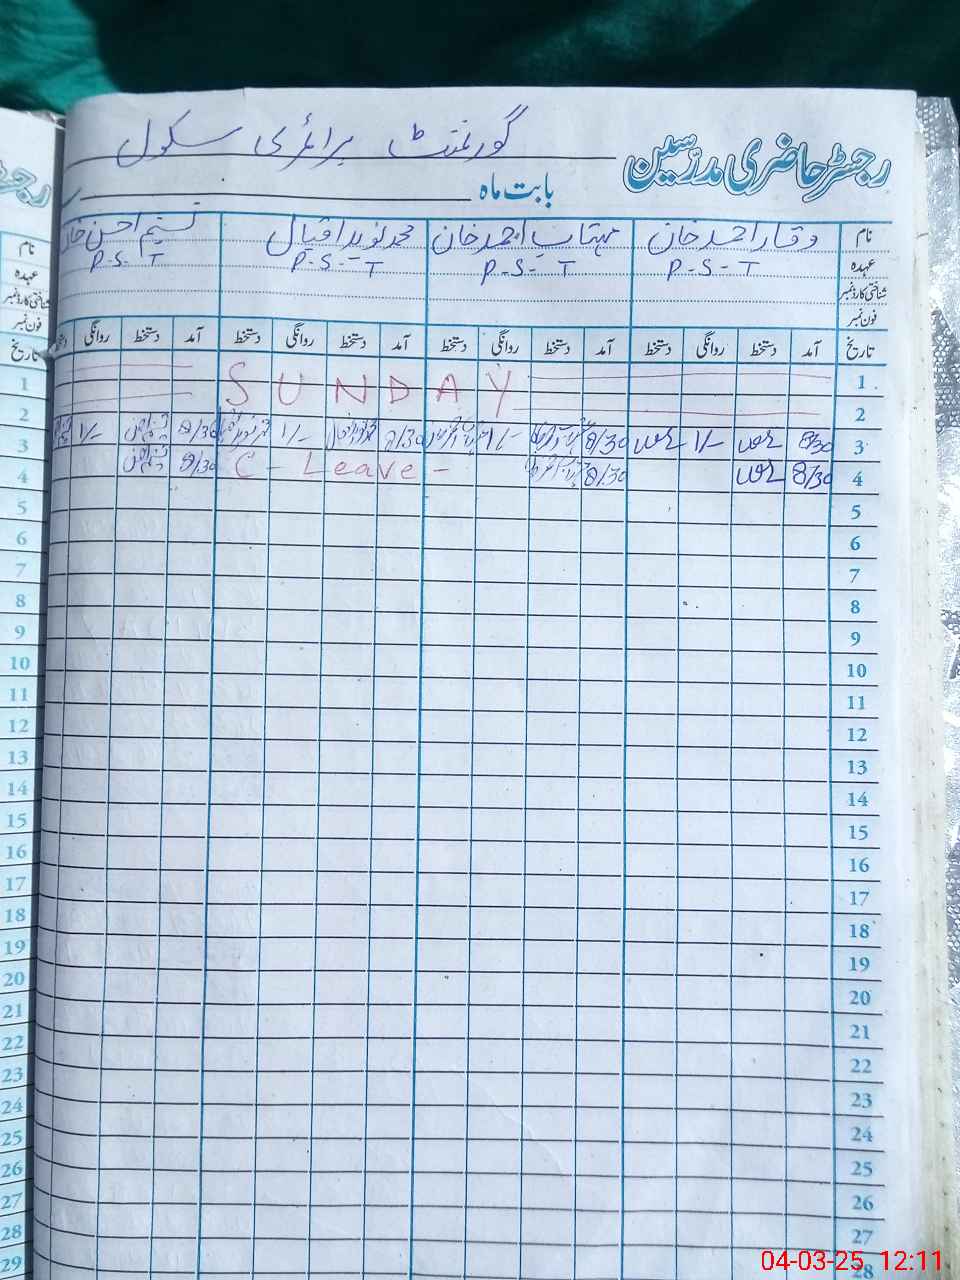 گورنمنٹ پرائمری سکول
رجسٹر حاضری مدرّسین
بابت ماہ
نام وقار احمد خان مہتاب احمد خان محمد نوید اقبال تسنیم احسن خان
عہدہ P-S-T P-S-T P-S-T P-S-T
شناختی کارڈ نمبر
فون نمبر
تاریخ آمد دستخط روانگی دستخط آمد دستخط روانگی دستخط آمد دستخط روانگی دستخط آمد دستخط روانگی
1 SUNDAY
2
3 8/30 1/- 8/30 1/- 8/30 1/- 8/30 1/-
4 8/30 8/30 C - Leave - 8/30
5
6
7
8
9
10
11
12
13
14
15
16
17
18
19
20
21
22
23
24
25
26
27
28
نام
عہدہ
شناختی کارڈ نمبر
فون نمبر
تاریخ
1
2
3
4
5
6
7
8
9
10
11
12
13
14
15
16
17
18
19
20
21
22
23
24
25
26
27
28
29
04-03-25 12:11